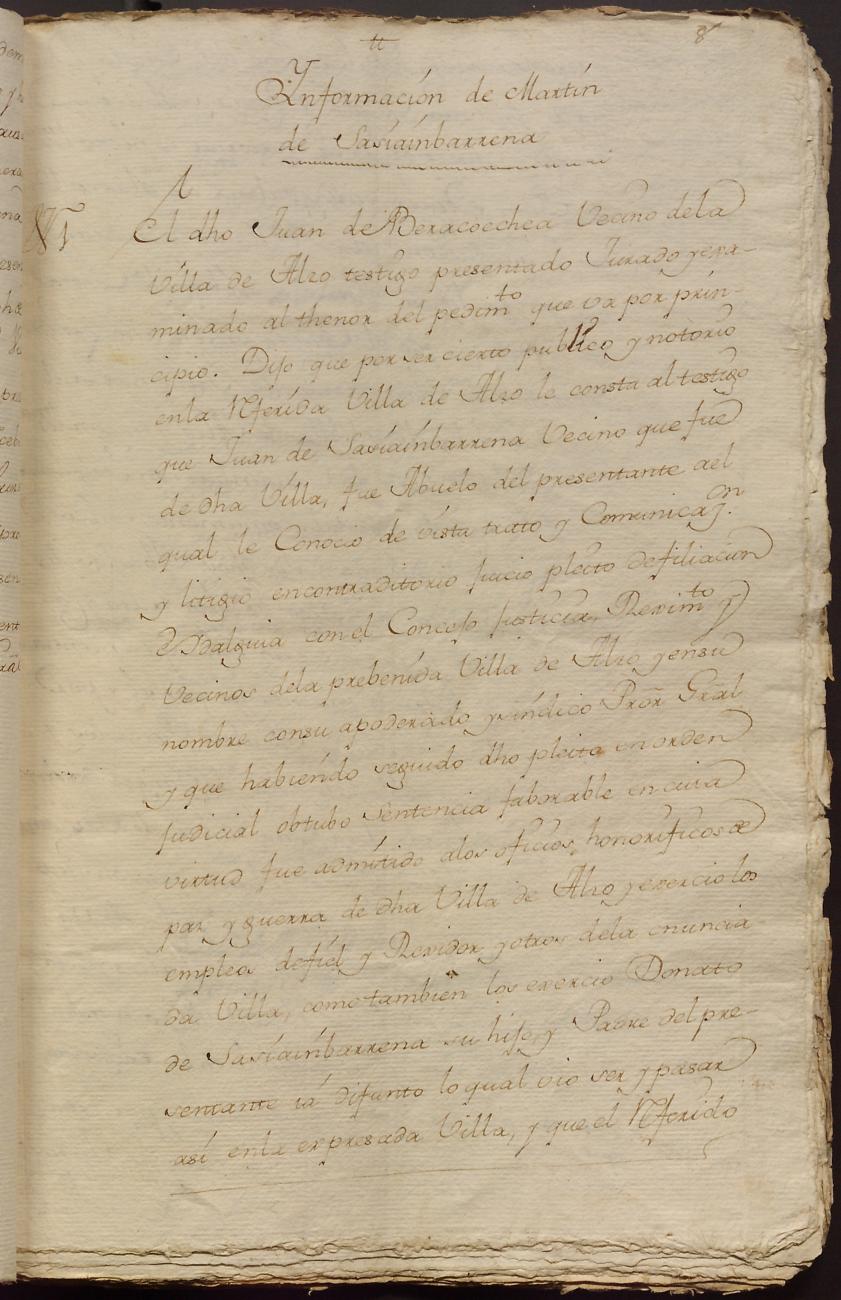 8
Ynformación de Martín
de Sasiaínbarrena
El dho Juan de Beracoechea Vecino dela
Villa de Alzo testigo presentado Jurado yexa-
minado al thenor del pedim.to que va por prin-
cipio. Dijo que por ser cierto publico y notorio
enla Rferida Villa de Alzo le consta al testigo
que Juan de Sasiaínbarrena Vecino que fue
de dha Villa, fue Abuelo del presentante ael
qual le Conocio de vista trato y Comunicaz.on
y litigio encontraditorio Juicio pleito defiliacion
e Ydalguia con el Concejo Justicia, Rexim.to y
Vecinos dela prebenida Villa de Alzo yensu
nombre consu apoderado ysíndico Pror Gral
y que habiendo seguido dho pleito en orden
Judicial obtubo Sentencia faborable en cuia
virtud fue admitido alos oficios honorificos de
paz y guerra de dha Villa de Alzo yexercio los
empleos defiel y Rexidor yotros dela enuncia
da Villa, como tambien los exercio Donato
de Sasiaínbarrena su hijo, y Padre del pre-
sentante iá difunto lo qual vio ser y pasar
así enla expresada Villa, y que el Rferido